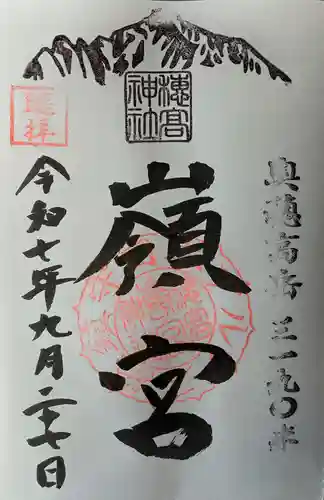 奥穂高岳 三一九〇米
穂高
神社
嶺宮
登拝
令和七年九月二十七日